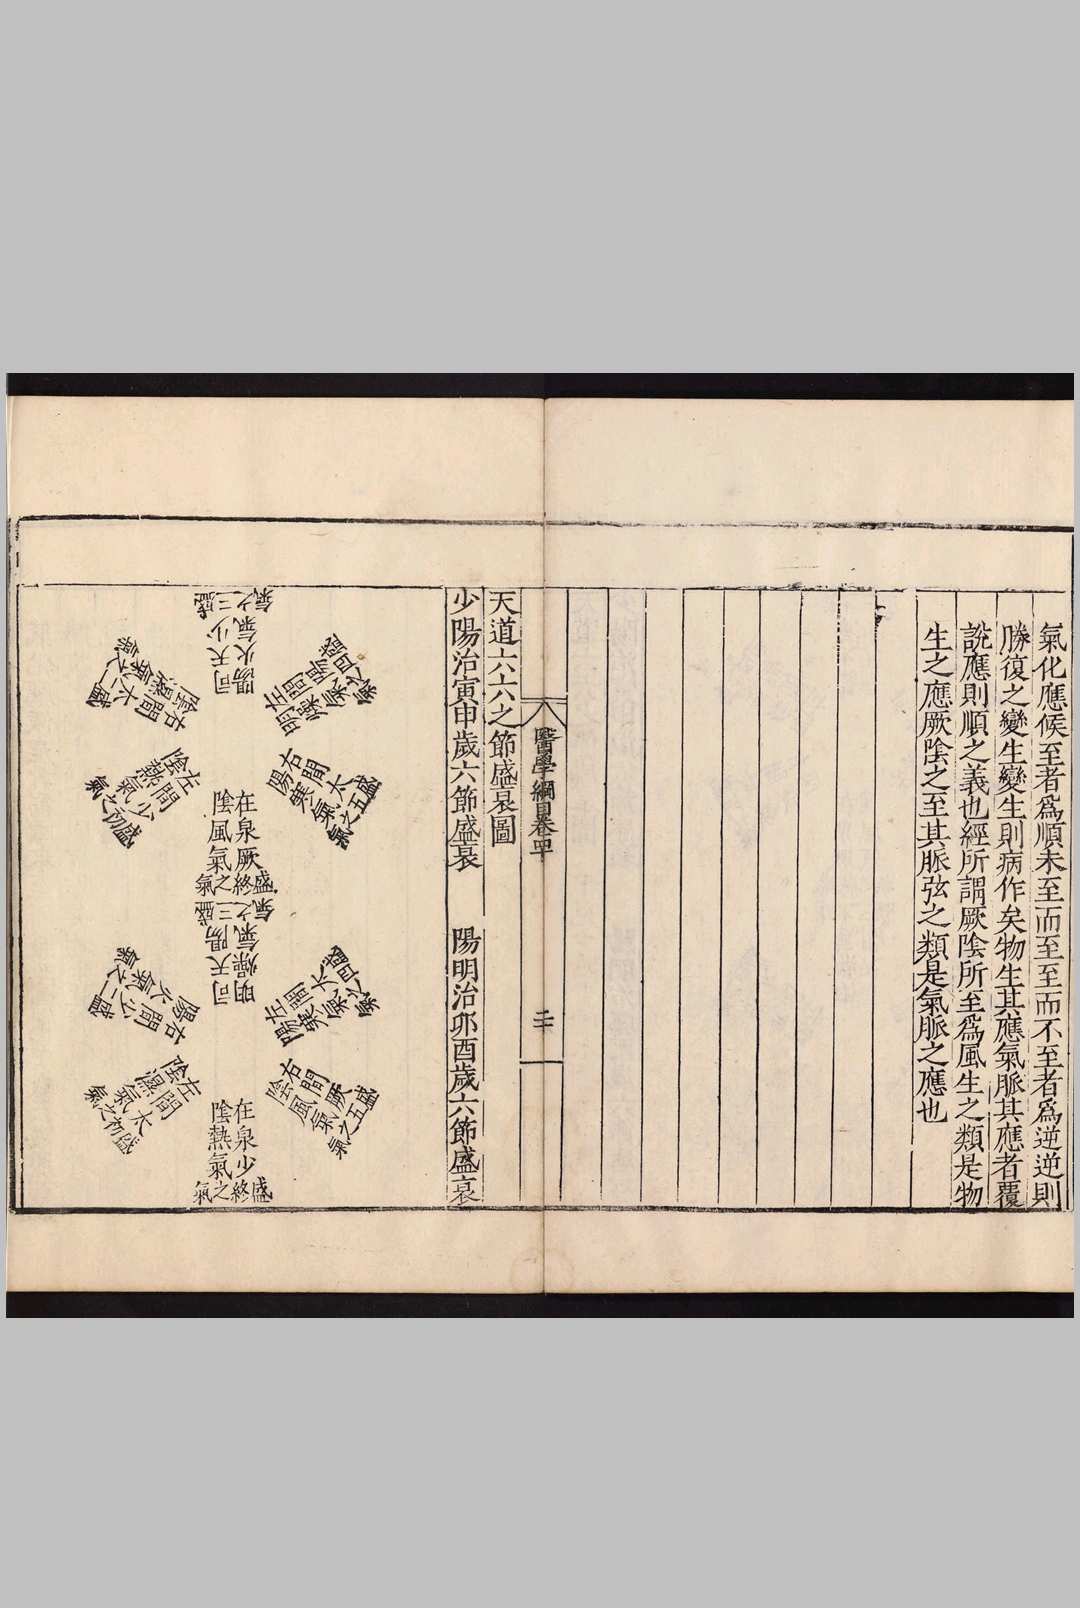 氣化應候至者爲順未至而至至而不至者爲逆逆則
勝復之變生變生則病作矣物生其應氣脈其應者覆
說應則順之義也經所謂厥陰所至爲風生之類是物
生之應厥陰之至其脈弦之類是氣脈之應也
醫學綱目卷四十
二十
天道六六之節盛衰圖
少陽治寅申歲六節盛衰
陽明治卯酉歲六節盛衰
司天少陽火氣三之氣盛
左間陽明燥氣四之氣盛
右間太陽寒氣五之氣盛
在泉厥陰風氣終之氣盛
左間少陰熱氣初之氣盛
右間太陰濕氣二之氣盛
司天陽明燥氣三之氣盛
左間太陽寒氣四之氣盛
右間厥陰風氣五之氣盛
在泉少陰熱氣終之氣盛
左間太陰濕氣初之氣盛
右間少陽火氣二之氣盛